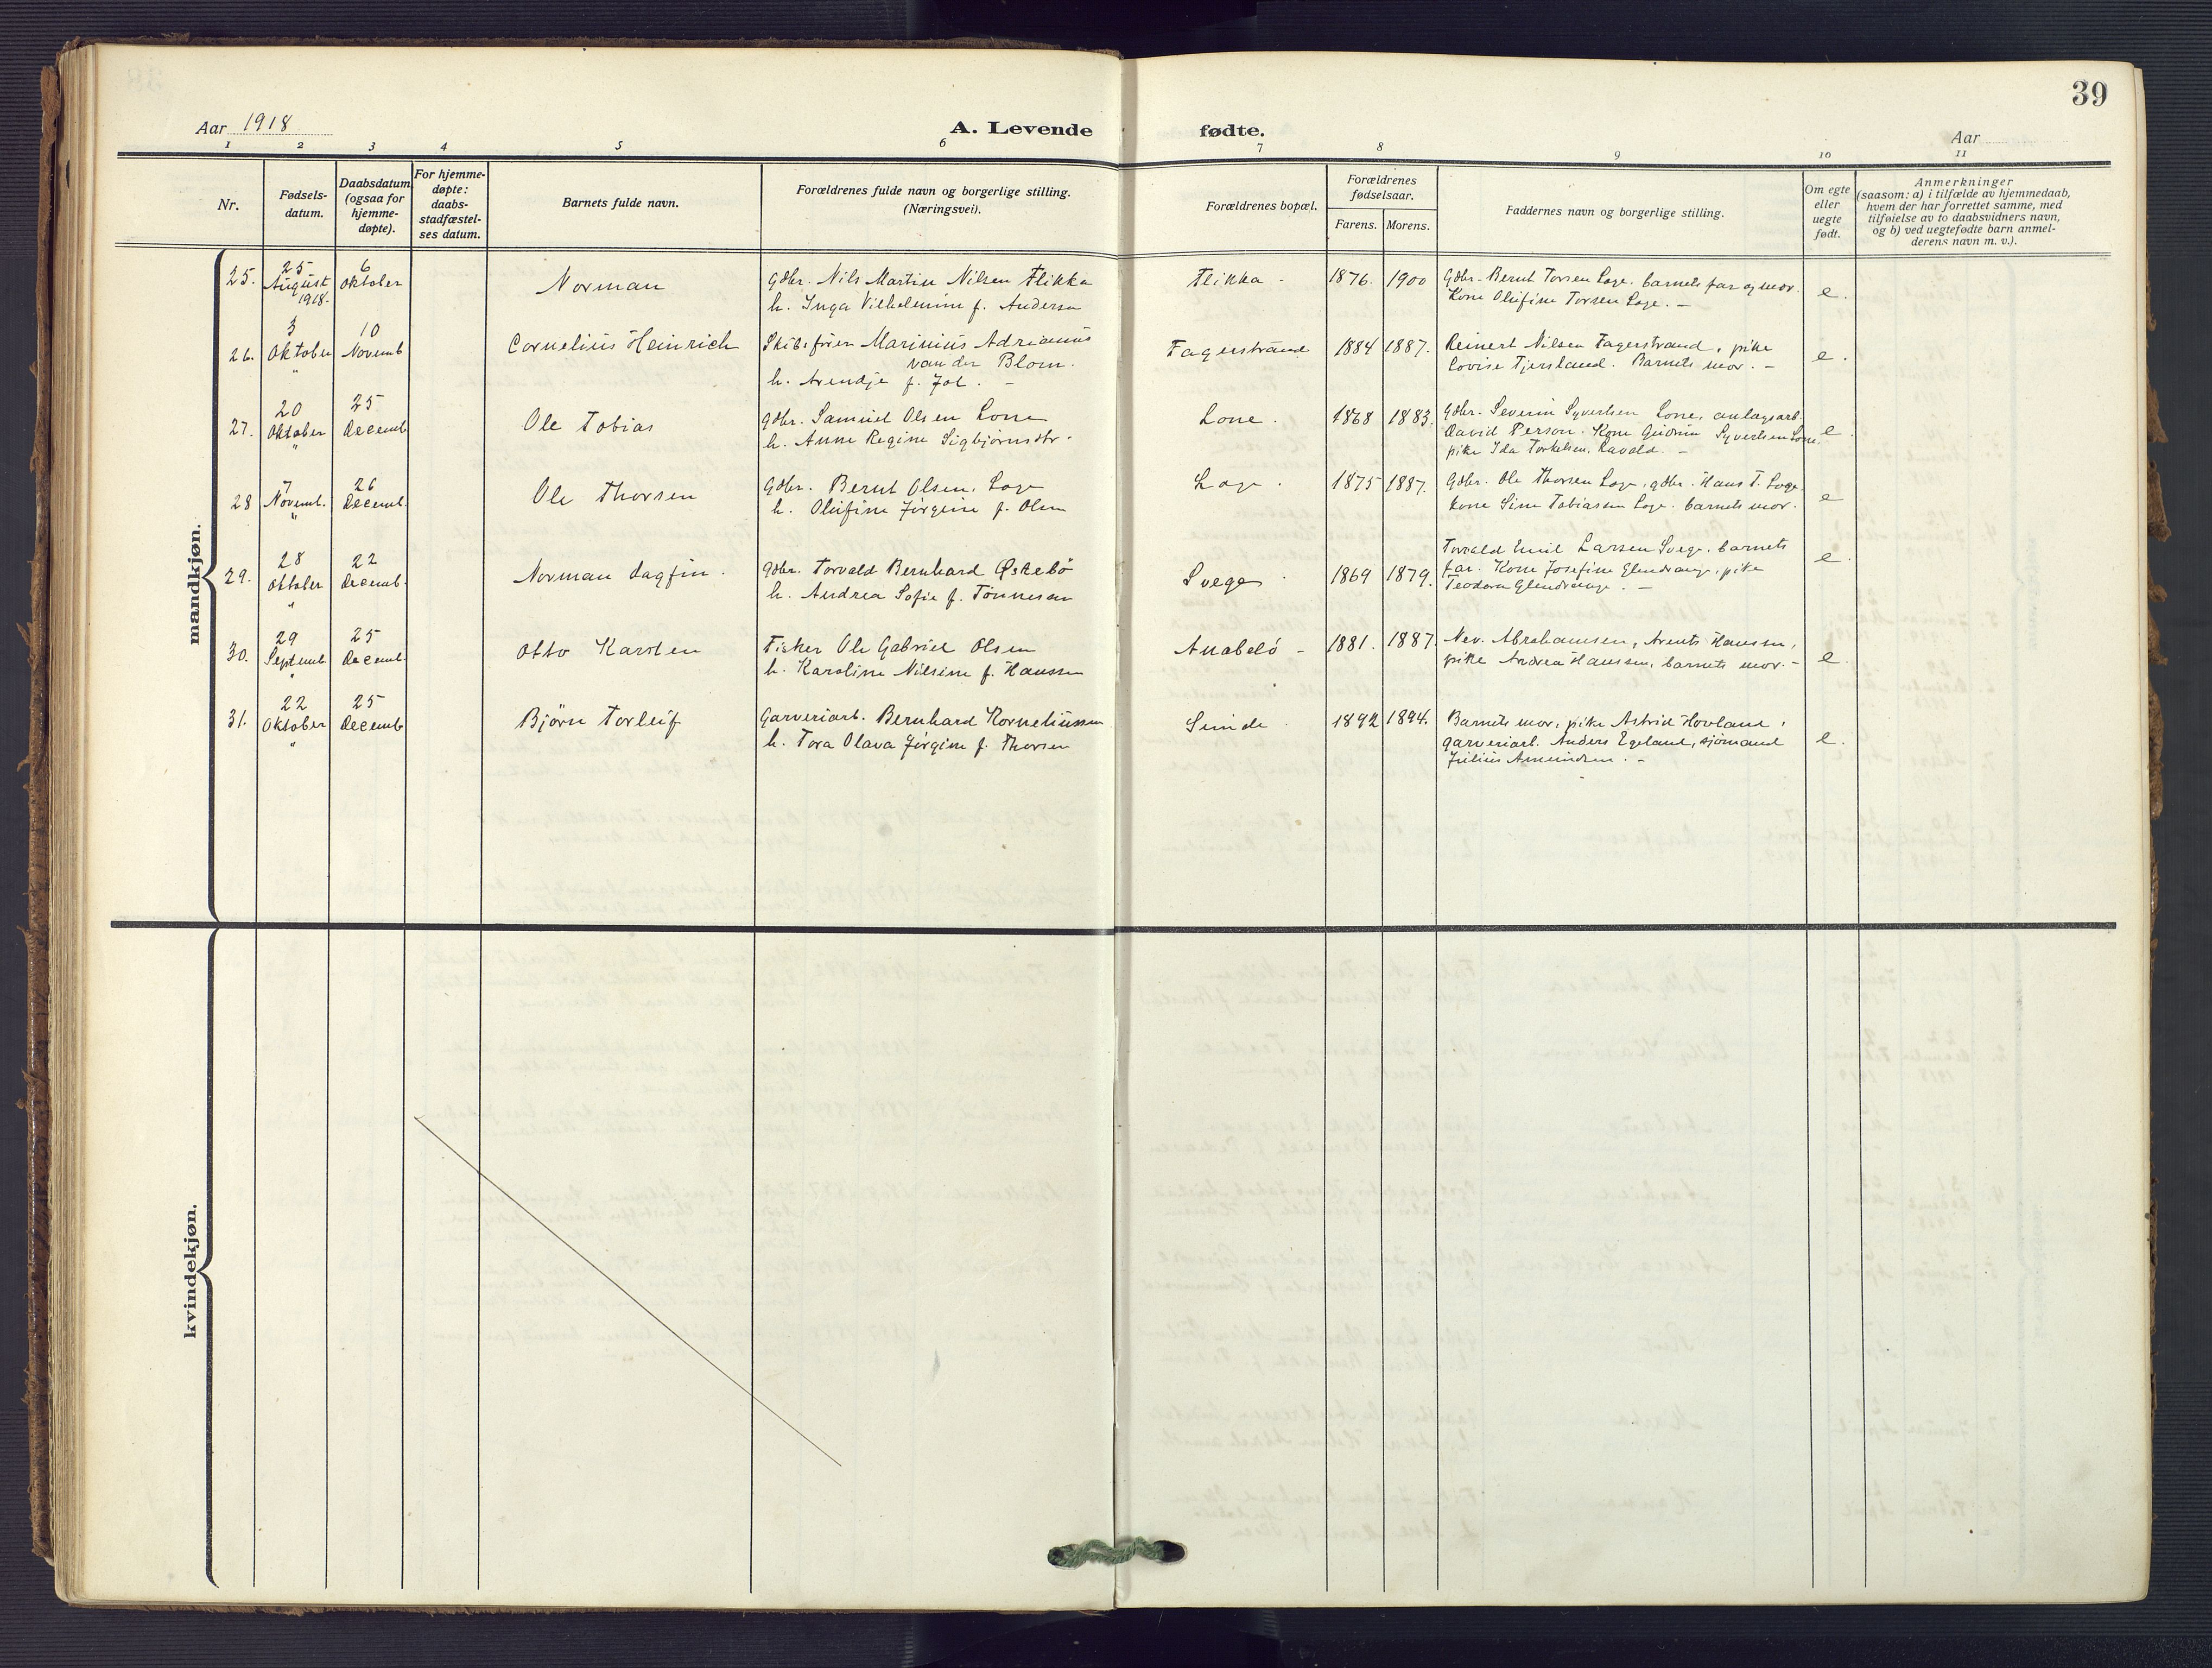 39
Aar 1918
A. Levende fødte.
Aar
1 2 3 4 5 6 7 8 9 10 11
Nr.
Fødsels-
datum.
Daabsdatum
(ogsaa for
hjemme-
døpte).
For hjemme-
døpte:
daabs-
stadfæstel-
ses datum.
Barnets fulde navn.
Forældrenes fulde navn og borgerlige stilling.
(Næringsvei).
Forældrenes bopæl.
Forældrenes
fødselsaar.
Farens. Morens.
Faddernes navn og borgerlige stilling.
Om egte
eller
uegte
født.
Anmerkninger
(saasom: a) i tilfælde av hjemmedaab,
hvem der har forrettet samme, med
tilføielse av to daabsvidners navn,
og b) ved uegtefødte barn anmel-
derens navn m. v.).
mandkjøn.
25.
25
August
1918.
6
Oktober
Norman
Gdbr. Nils Martin Nilsen Flikka
h. Inga Vilhelmine f. Andersen
Flikka -
1876. 1900
Gdbr. Bernt Torsen Loge. barnets far og mor.
Kone Olufine Torsen Loge. -
e.
26.
3
Oktober
"
10
Novemb
Cornelius Heinrich
Skibsfører Marinius Adrianus
van der Blom.
h. Arendje f. Jol. -
Fagerstrand
1884 1887.
Reinert Nilsen Fagerstrand, pike
Lovise Tjersland. Barnets mor. -
e.
27.
20
Oktober
"
25
Decemb
Ole Tobias
gdbr. Samuel Olsen Lone
h. Anne Regine Sigbjørnsdtr.
Lone.
1868 1883.
Gdbr. Severin Syvertsen Lone, anlægsarb.
David Person. Kone Gudrun Syvertsen Lone.
pike Ida Torkelsen, Ravald. -
e.
28
7
Novemb.
"
26
Decemb.
Ole Thorsen
Gdbr. Bernt Olsen, Loge
h. Olufine Jørgine f. Olsen
Loge.
1875 1887.
Gdbr. Ole Thorsen Loge, gdbr. Hans T. Loge.
kone Sine Tobiassen Loge. barnets mor.
e
29.
28
Oktober
"
22
Decemb.
Norman Dagfin.
Gdbr. Torvald Bernhard Østebö
h. Andrea Sofie f. Tönnesen
Svege
1869 1879.
Torvald Emil Larsen Svege. barnets
far. Kone Josefine Glendrange, pike
Teodora Glendrange. -
e.
30.
29
Septemb
"
25
Decemb.
Otto Karsten
Fisker Ole Gabriel Olsen
h. Karoline Nilsine f. Hanssen
Anabelö -
1881. 1887
Nev. Abrahamsen, Arents Hanssen,
pike Andrea Hanssen, barnets mor. -
e.
31.
22
Oktober
"
25
Decemb
Björn Torleif
Garveriarb. Bernhard Korneliussen
h. Tora Olava Jörgine f. Thorsen
Sunde
1892 1894.
Barnets mor, pike Astrid Hovland,
garveriarb. Anders Egeland, sjömand
Julius Amundsen. -
e.
kvindekjøn.